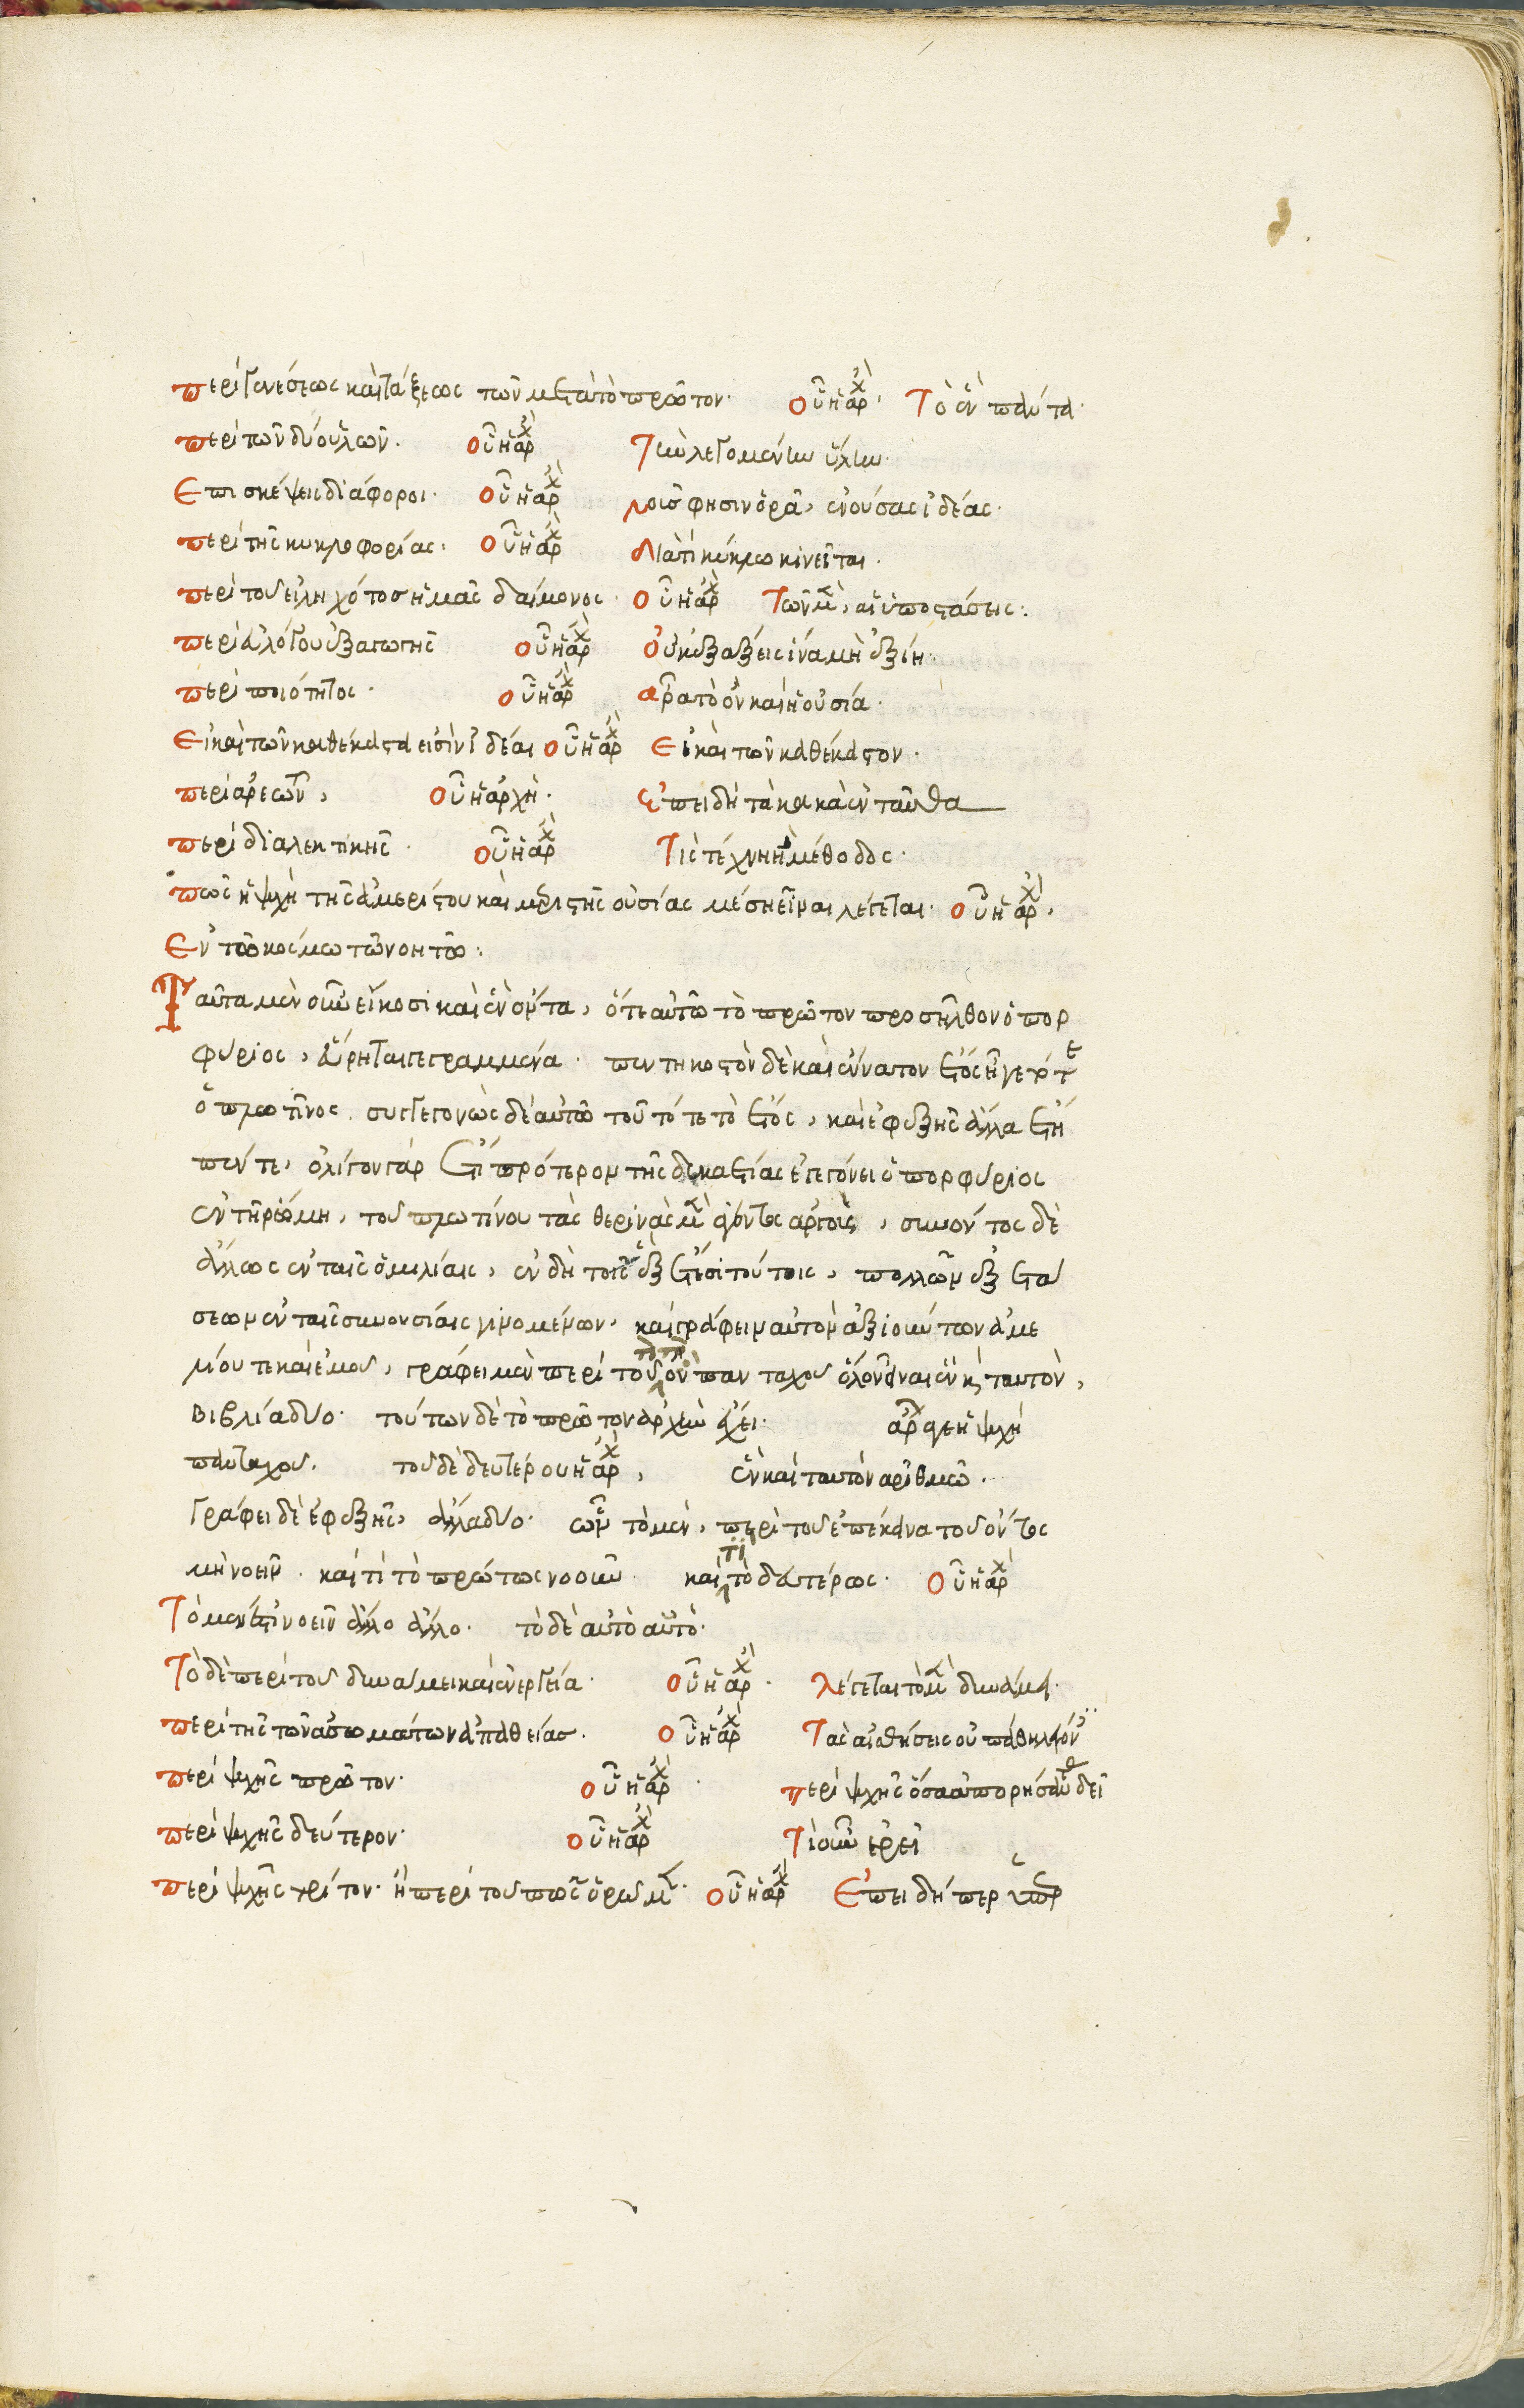 περὶ γενέσεως καὶ τάξεως τῶν μετὰ τὸ πρῶτον· οὗ ἡ ἀρχὴ· Τὸ ἓν πάντα·
περὶ τῶν δύο ὑλῶν· οὗ ἡ ἀρχὴ Τὴν λεγομένην ὕλην·
Επισκέψεις διάφοροι· οὗ ἡ ἀρχὴ Νοῦς φησὶν ὁρᾶ, ἐνούσας ἰδέας·
περὶ τῆς κυκλοφορίας· οὗ ἡ ἀρχὴ Διατί κύκλω κινεῖται·
περὶ τοῦ εἰληχότος ἡμᾶς δαίμονος· οὗ ἡ ἀρχὴ Τῶν μὲν, αἱ ὑποστάσεις:
περὶ εὐλόγου ἐξαγωγῆς οὗ ἡ ἀρχὴ Οὐκ ἐξάξεις ἵνα μὴ ἐξίη·
περὶ ποιότητος· οὗ ἡ ἀρχὴ αρα τὸ ὂν καὶ ἡ οὐσία·
Εἰ καὶ τῶν καθέκαστα εἰσὶν ἰδέαι οὗ ἡ ἀρχὴ Εἰ καὶ τῶν καθέκαστον·
περὶ ἀρετῶν, οὗ ἡ ἀρχὴ· ἐπειδὴ τὰ κακὰ ἐνταῦθα
περὶ διαλεκτικῆς· οὗ ἡ ἀρχὴ Τίς τέχνη ἢ μέθοδος·
πῶς ἡ ψυχὴ τῆς ἀμερίστου καὶ μεριστῆς οὐσίας μέση εἶναι λέγεται· οὗ ἡ ἀρχὴ,
Εν τῶ κόσμω τῶ νοητῶ:
Ταῦτα μὲν οὖν εἴκοσι καὶ ἓν ὄντα, ὅτε αὐτῶ τὸ πρῶτον προσῆλθον ὁ πορ
φύριος, εὕρηται γεγραμμένα· πεντηκοστὸν δὲ καὶ ἔννατον ἔτος ἦγε τότε
ὁ πλωτῖνος συγγεγονὼς δὲ αὐτῶ τοῦτό τε τὸ ἔτος, καὶ ἐφεξῆς ἄλλα ἔτη
πέντε, ὀλίγον γὰρ ἔτι πρότερον τῆς δεκαετίας ἐγεγόνει ὁ πορφύριος
ἐν τῆ ῥώμη, τοῦ πλωτίνου τὰς θερινὰς μὲν ἄγοντος ἀργοὺς, συνόντος δὲ
ἄλλως ἐν ταῖς ὁμιλίαις, ἐν δὴ τοῖς ἓξ ἔτεσι τούτοις, πολλῶν ἐξετά
σεων ἐν ταῖς συνουσίαις γινομένων, καὶ γράφειν αὐτὸν ἀξιούντων ἀμε
λίου τε καὶ ἐμοῦ, γράφει μὲν περὶ τοῦ ὂν πανταχοῦ ὅλον εἶναι ἓν καὶ ταυτὸν,
βιβλία δύο· τούτων δὲ τὸ πρῶτον ἀρχὴν ἔχει· ἆρά γε ἡ ψυχὴ
πανταχοῦ, τοῦ δὲ δευτέρου ἡ ἀρχὴ, ἓν καὶ ταυτὸν ἀριθμῶ·
Γράφει δὲ ἐφεξῆς, ἄλλα δύο· ὧν τὸ μὲν, περὶ τοῦ ἐπέκεινα τοῦ ὄντος
μὴ νοεῖν· καὶ τί τὸ πρώτως νοοῦν καὶ τί τὸ δευτέρως· οὗ ἡ ἀρχὴ
Τὸ μέν ἐστι νοεῖν ἄλλο ἄλλο· τὸ δὲ αὐτὸ αὑτὸ·
Τὸ δὲ περὶ τοῦ δυνάμει καὶ ἐνεργεία· οὗ ἡ ἀρχὴ· λέγεται τὸ μὲν δυνάμει·
περὶ τῆς τῶν ἀσωμάτων ἀπαθείας· οὗ ἡ ἀρχὴ Τὰς αἰσθήσεις οὐ πάθη λέγον
περὶ ψυχῆς πρῶτον· οὗ ἡ ἀρχὴ· περὶ ψυχῆς ὅσα ἀπορήσαντας δεῖ
περὶ ψυχῆς δεύτερον· οὗ ἡ ἀρχὴ Τί οὖν ἐρεῖ
περὶ ψυχῆς τρίτον· ἢ περὶ τοῦ πῶς ὁρῶμεν· οὗ ἡ ἀρχὴ Επειδήπερ